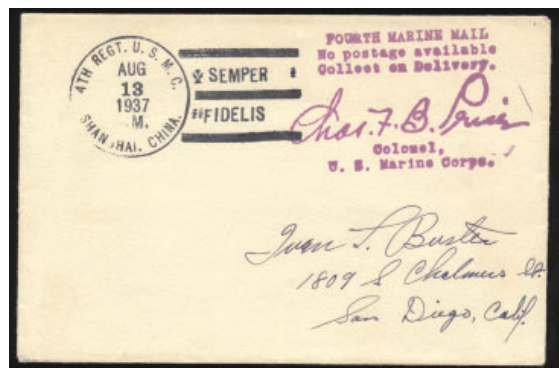 4TH REGT. U. S. M. C.
AUG
13
1937
M.
SHANGHAI, CHINA.
SEMPER
FIDELIS
FOURTH MARINE MAIL
No postage available
Collect on Delivery.
Chas. F. B. Price
Colonel,
U. S. Marine Corps.
Ivan T. Buster
1809 S Chalmers St.
San Diego, Calif.